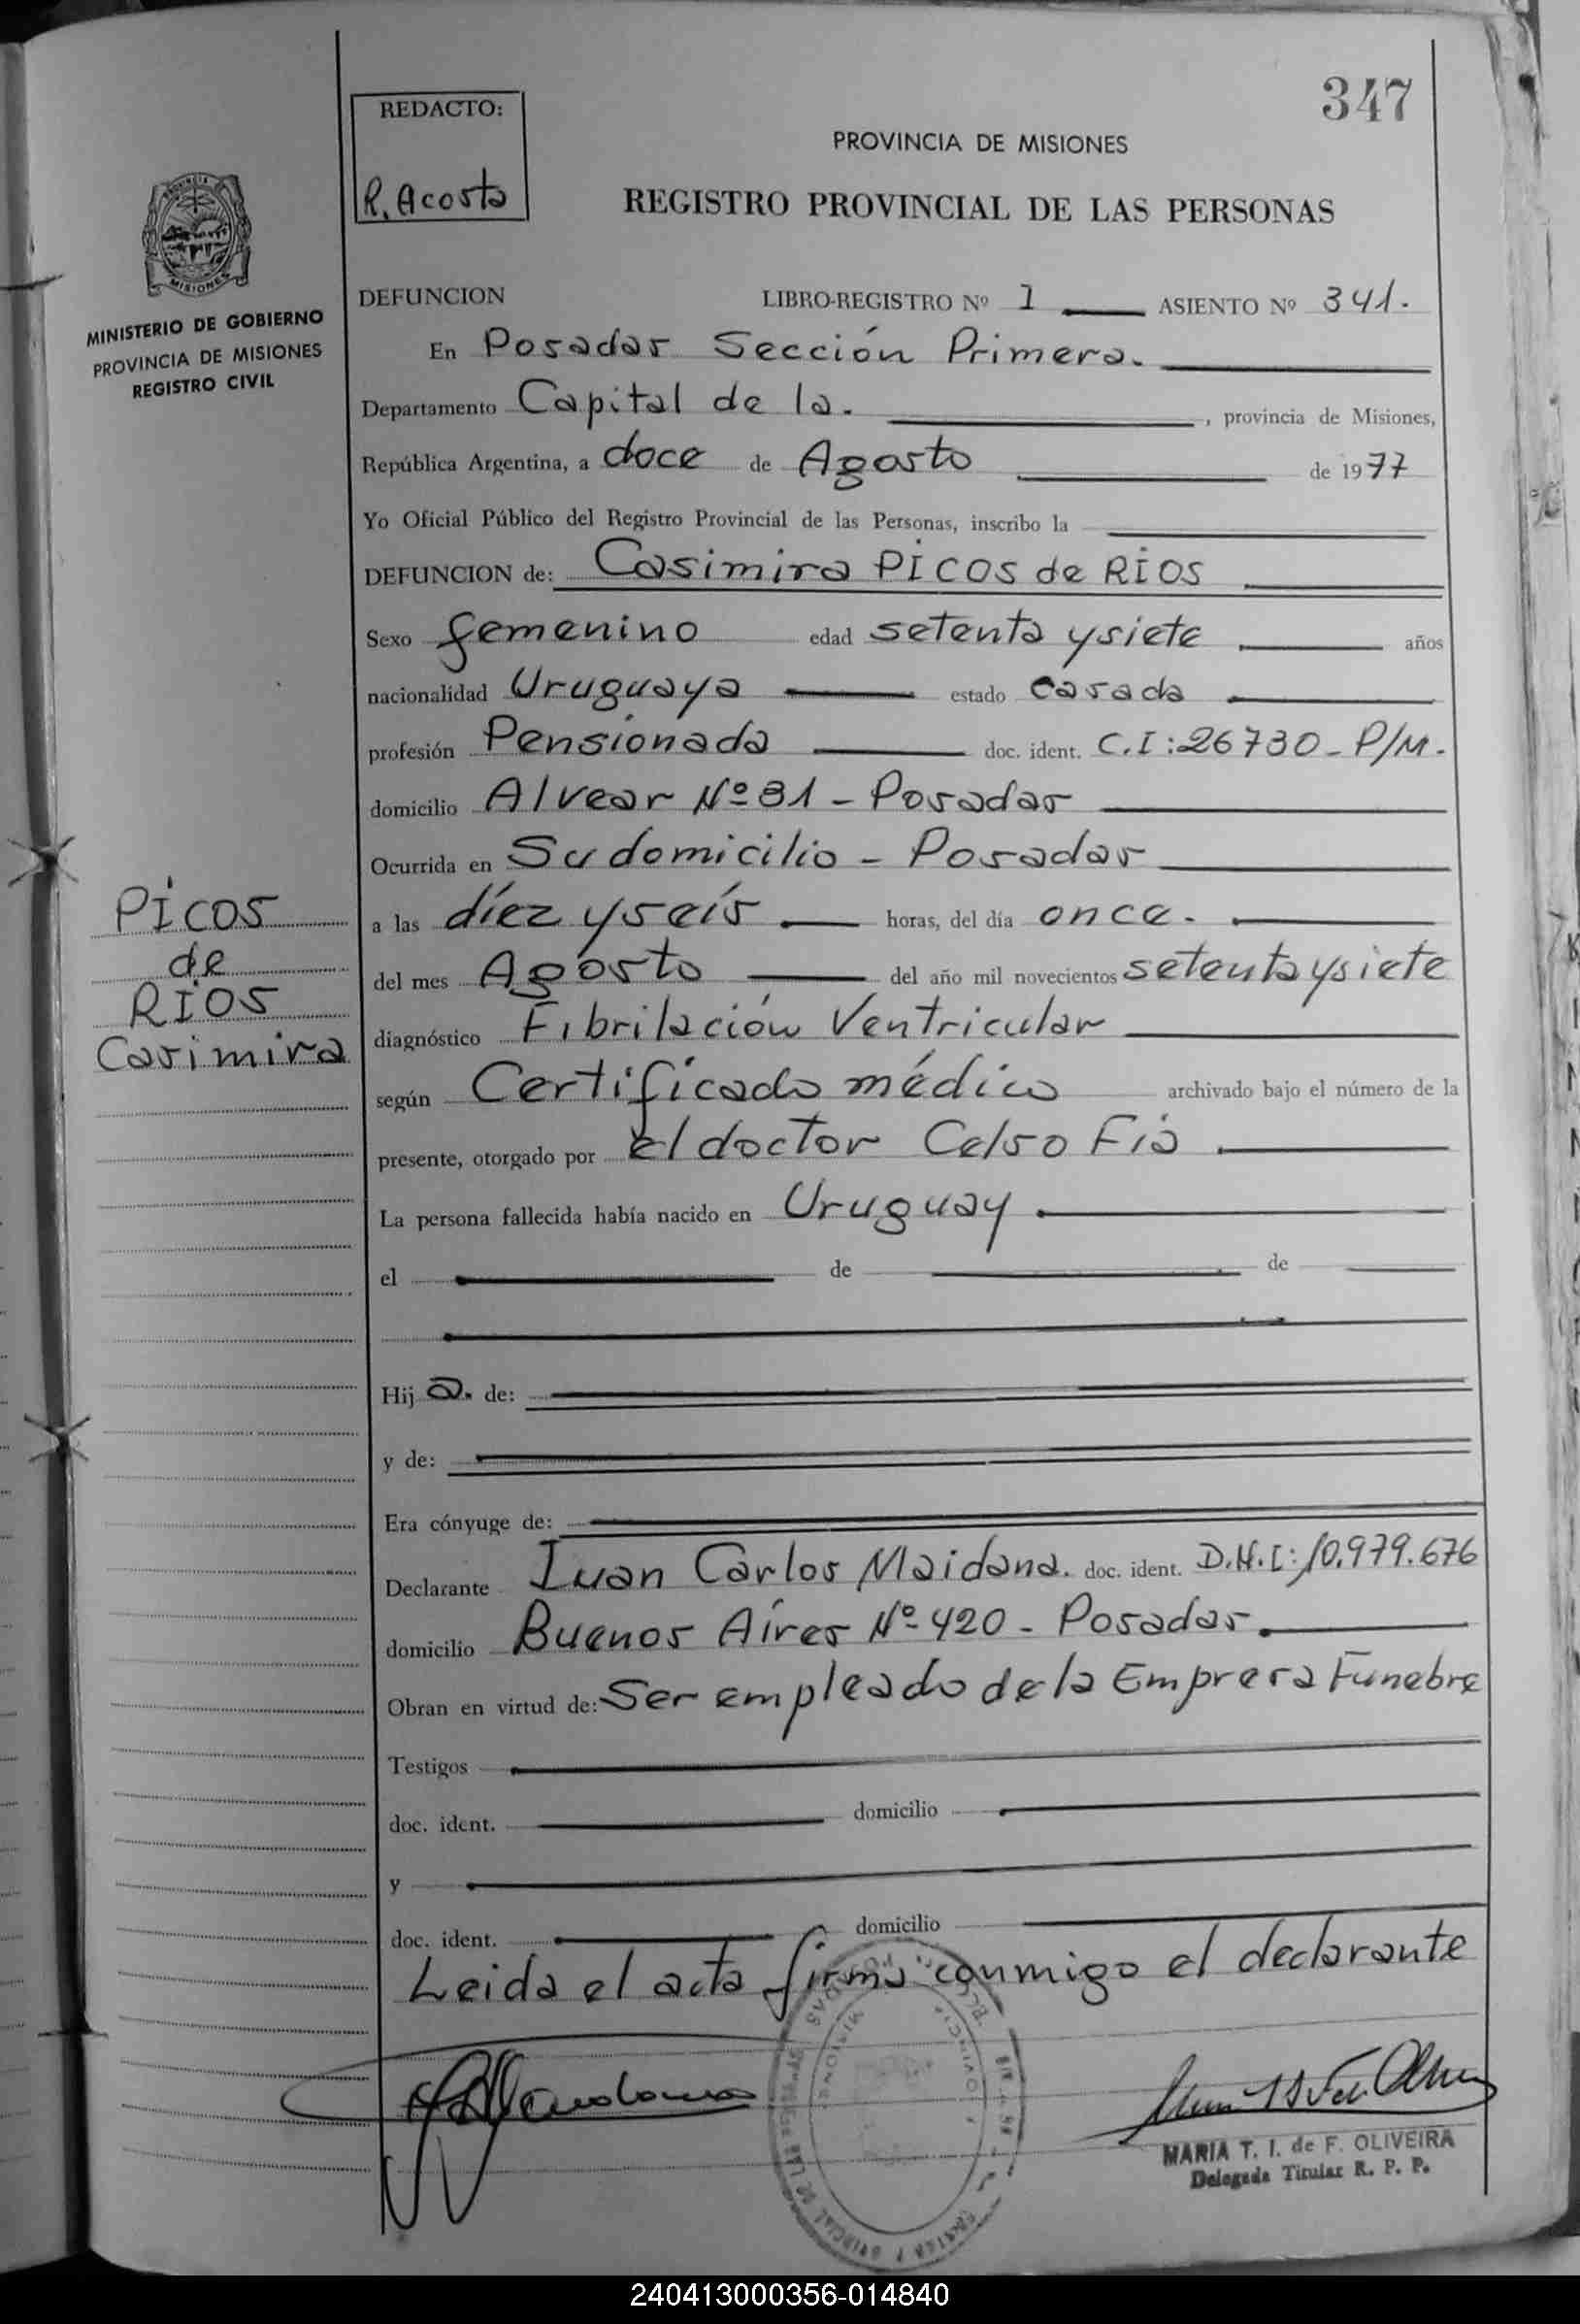 347
REDACTO:
R. Acosta
PROVINCIA DE MISIONES
REGISTRO PROVINCIAL DE LAS PERSONAS
MISIONES
MINISTERIO DE GOBIERNO
PROVINCIA DE MISIONES
REGISTRO CIVIL
DEFUNCION LIBRO-REGISTRO Nº 1 ASIENTO Nº 341.
En Posadas Sección Primera.
Departamento Capital de la. , provincia de Misiones,
República Argentina, a doce de Agosto de 1977
Yo Oficial Público del Registro Provincial de las Personas, inscribo la
DEFUNCION de: Casimira PICOS de RIOS
Sexo femenino edad setenta y siete años
nacionalidad Uruguaya estado casada
profesión Pensionada doc. ident. C.I:26730-P/M.
domicilio Alvear Nº 81 - Posadas
Ocurrida en Su domicilio - Posadas
a las diez y seis horas, del día once.
del mes Agosto del año mil novecientos setenta y siete
diagnóstico Fibrilación Ventricular
según Certificado médico archivado bajo el número de la
presente, otorgado por el doctor Celso Fia
La persona fallecida había nacido en Uruguay
el de de
Hij a. de:
y de:
Era cónyuge de:
Declarante Juan Carlos Maidana. doc. ident. D.N.I:10.979.676
domicilio Buenos Aires Nº 420 - Posadas.
Obran en virtud de: Ser empleado de la Empresa Funebre
Testigos
doc. ident. domicilio
y
doc. ident. domicilio
Leida el acta firma conmigo el declarante
PICOS
de
RIOS
Casimira
MARIA T. I. de F. OLIVEIRA
Delegada Titular R. P. P.
240413000356-014840